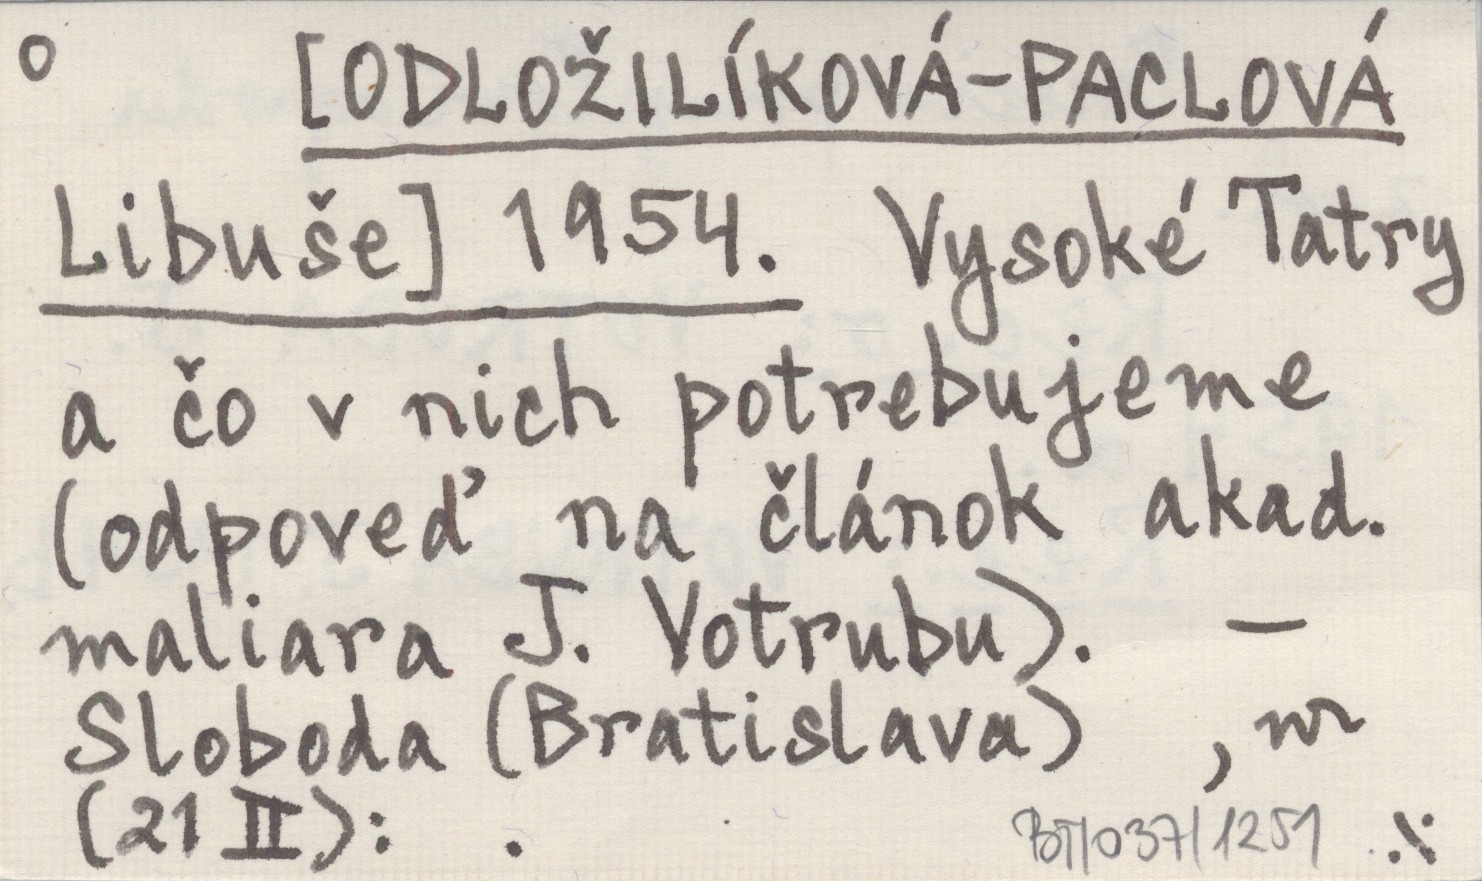 o [ODLOŽILÍKOVÁ-PACLOVÁ
Libuše] 1954. Vysoké Tatry
a čo v nich potrebujeme
(odpoveď na článok akad.
maliara J. Votrubu). —
Sloboda (Bratislava) , nr
(21 II): .
BT/037/1251